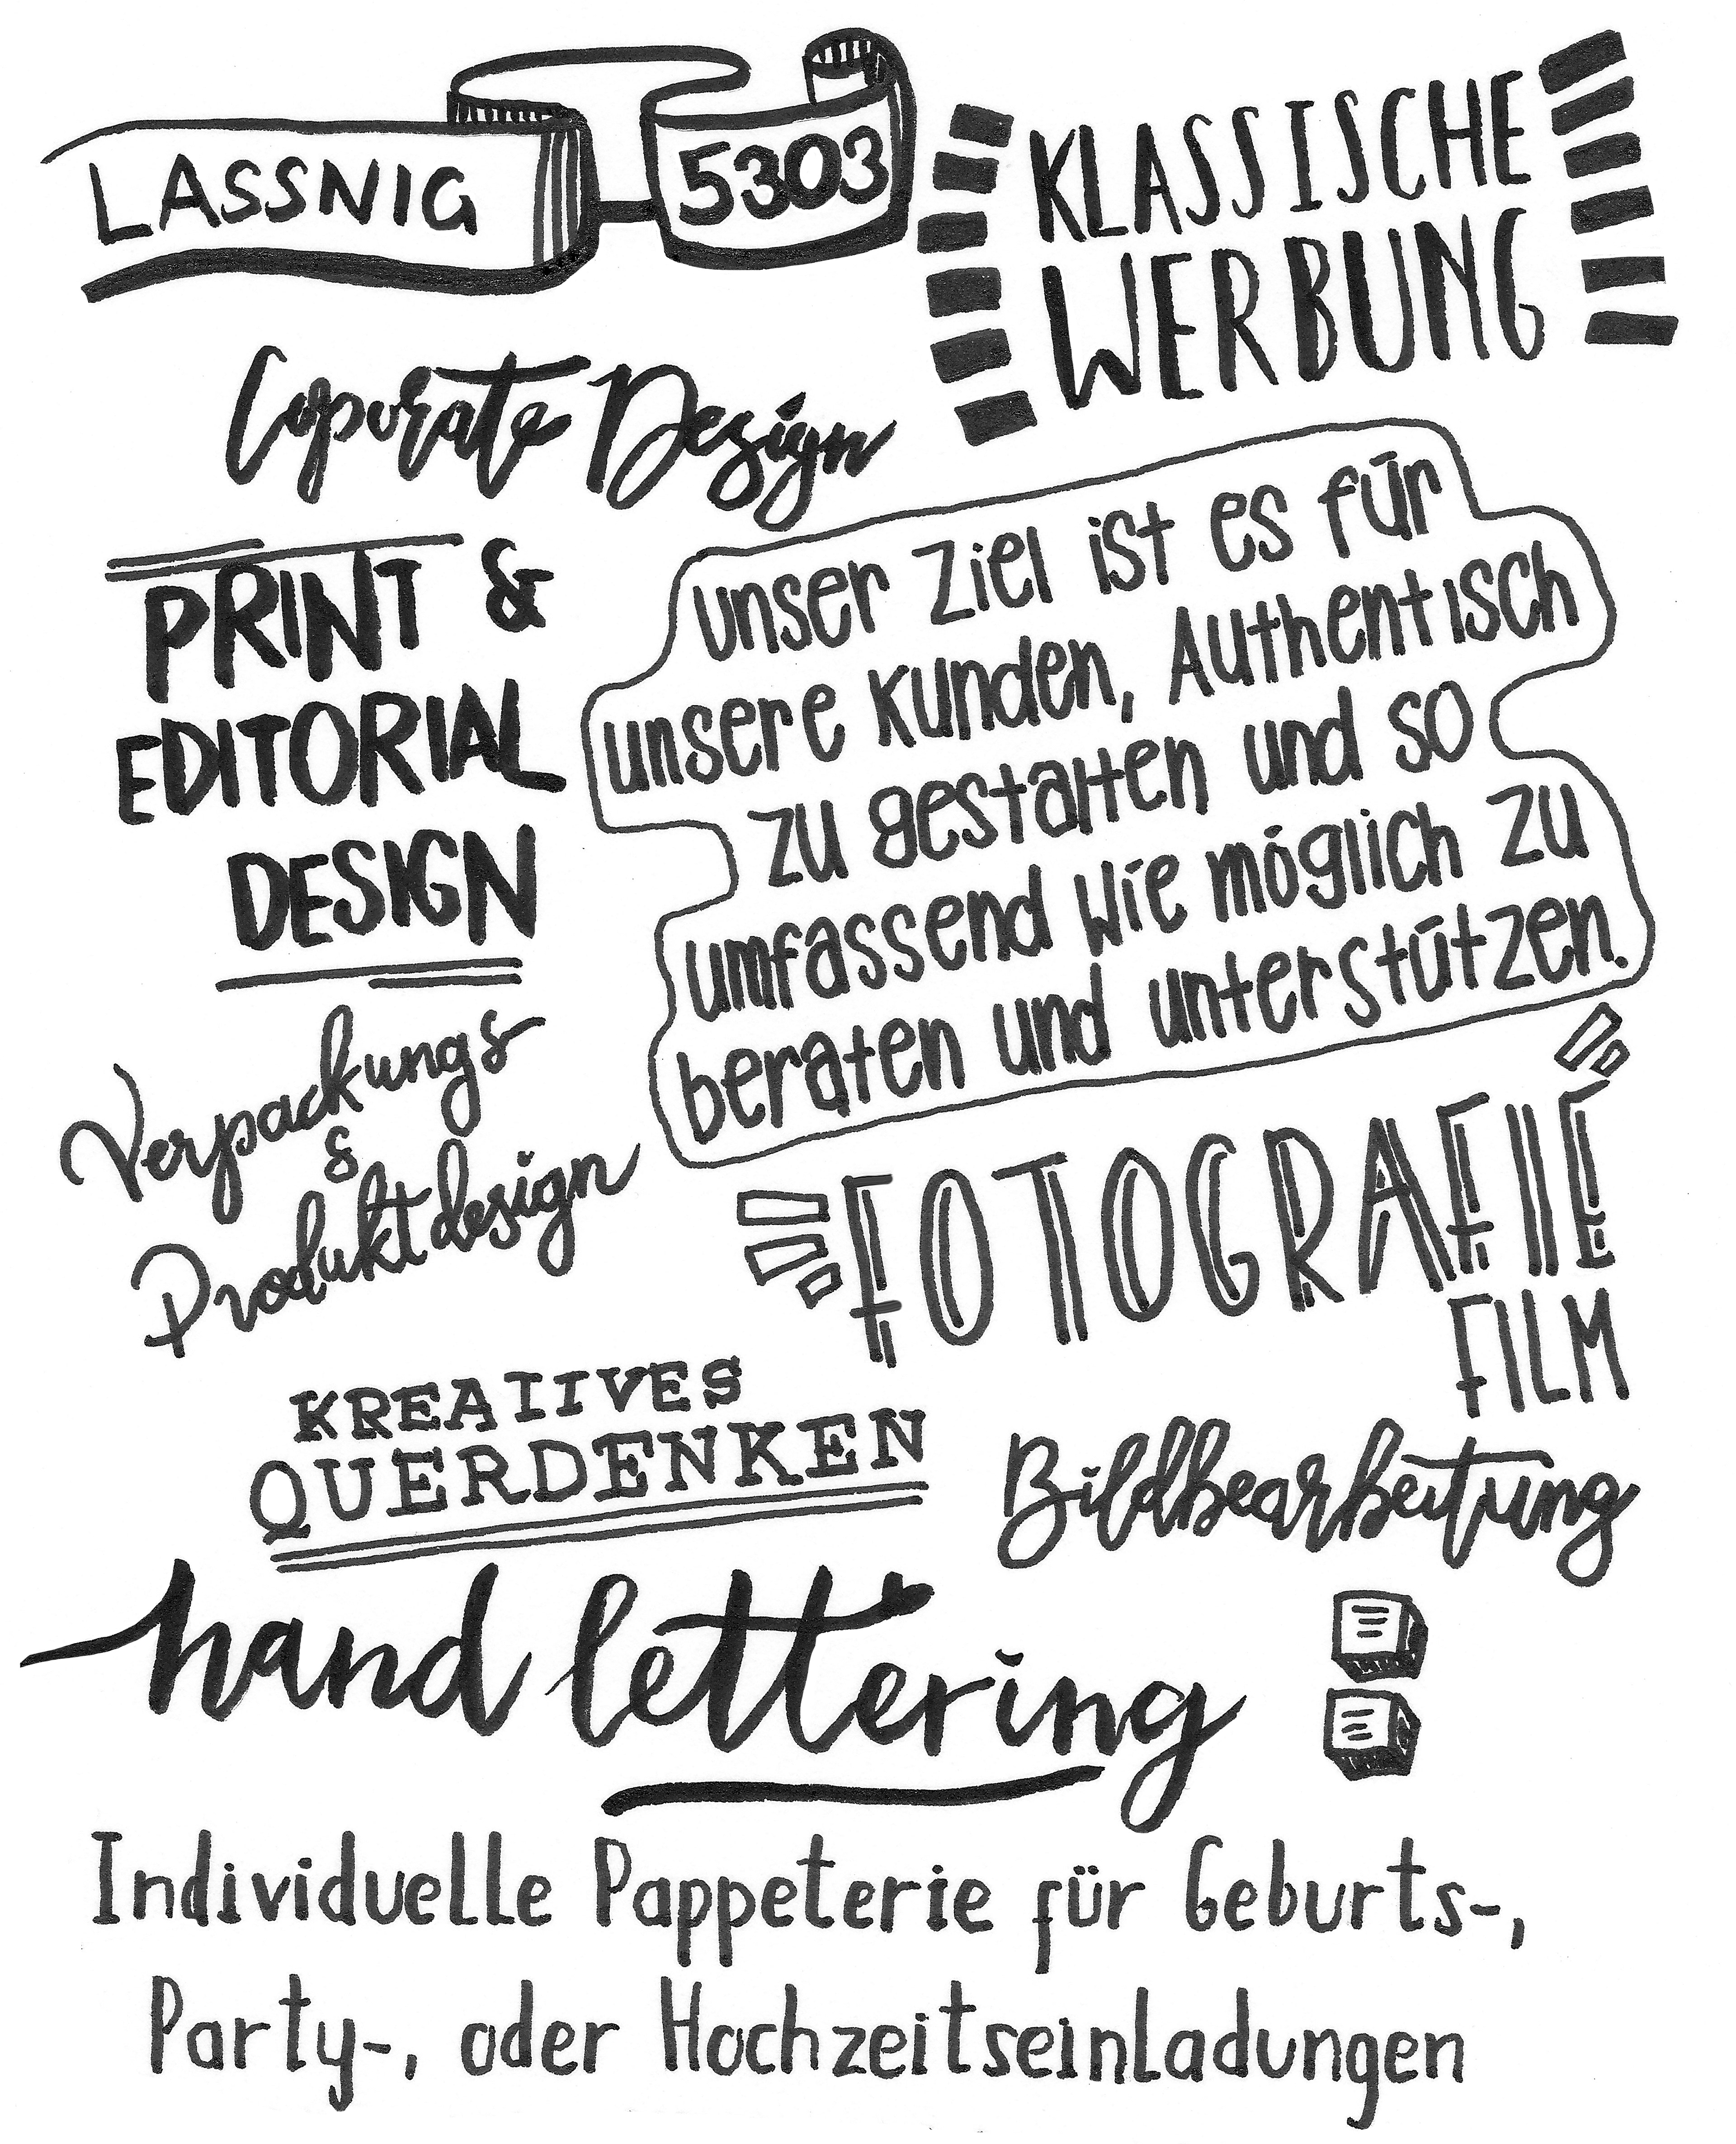 LASSNIG 5303
KLASSISCHE
WERBUNG
Coporate Design
PRINT &
EDITORIAL
DESIGN
unser Ziel ist es für
unsere Kunden, Authentisch
zu gestalten und so
umfassend wie möglich zu
beraten und unterstützen.
Verpackungs
&
Produktdesign
FOTOGRAFIE
FILM
KREATIVES
QUERDENKEN
Bildbearbeitung
hand lettering
Individuelle Pappeterie für Geburts-,
Party-, oder Hochzeitseinladungen